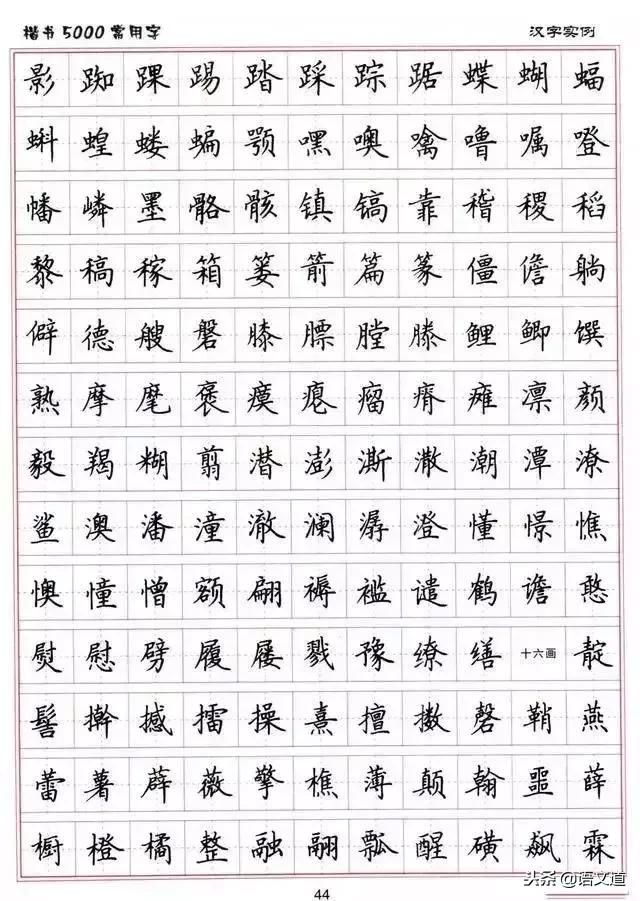 楷书5000常用字 汉字实例
影踟踝踢踏踩踪踞蝶蝴蝠
蝌蝗蝼蝙颚嘿噢噙噜嘱噔
幡嶙墨骼骸镇镐靠稽稷稻
黎稿稼箱篓箭篇篆僵儋躺
僻德艘磐膝膘膛滕鲤鲫馔
熟摩麾褒瘼瘪瘤瘠瘫凛颜
毅羯糊翦潜澎澌潵潮潭潦
鲨澳潘潼澈澜潺澄懂憬憔
懊憧憎额翩褥褴谴鹤谵憨
熨慰劈履屦戮豫缭缮十六画靛
髻擀撼擂操熹擅擞磬鞘燕
蕾薯薜薇擎樵薄颠翰噩薛
橱橙橘整融翮瓢醒磺飙霖
44
头条@语文道